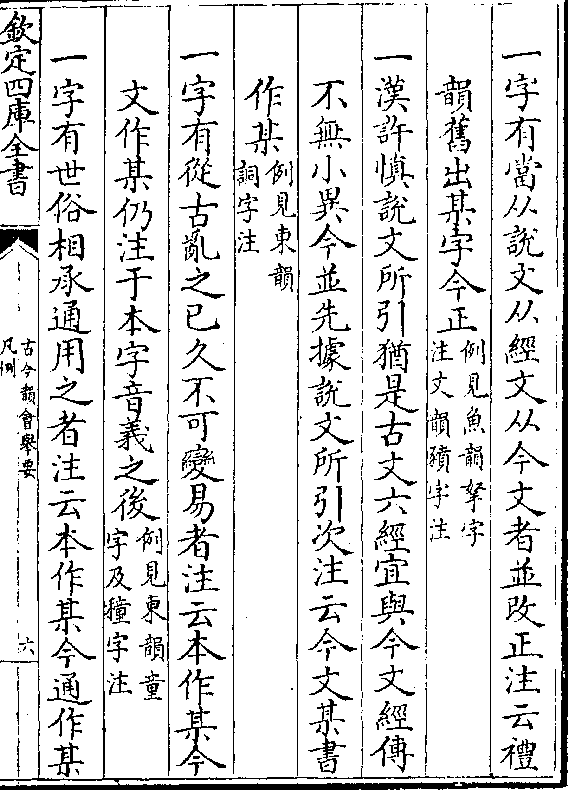 一字有當从說文从經文从今文者並改正注云禮
韻舊出某字今正例見魚韻拏字注文韻豶字注
一漢許愼說文所引猶是古文六經宜與今文經傳
不無小異今並先據說文所引次注云今文某書
作某例見東韻詞字注
一字有從古亂之已久不可變易者注云本作某今
文作某仍注于本字音義之後例見東韻童字及穜字注
一字有世俗相承通用之者注云本作某今通作某
欽定四庫全書
古今韻會舉要
凡例
六